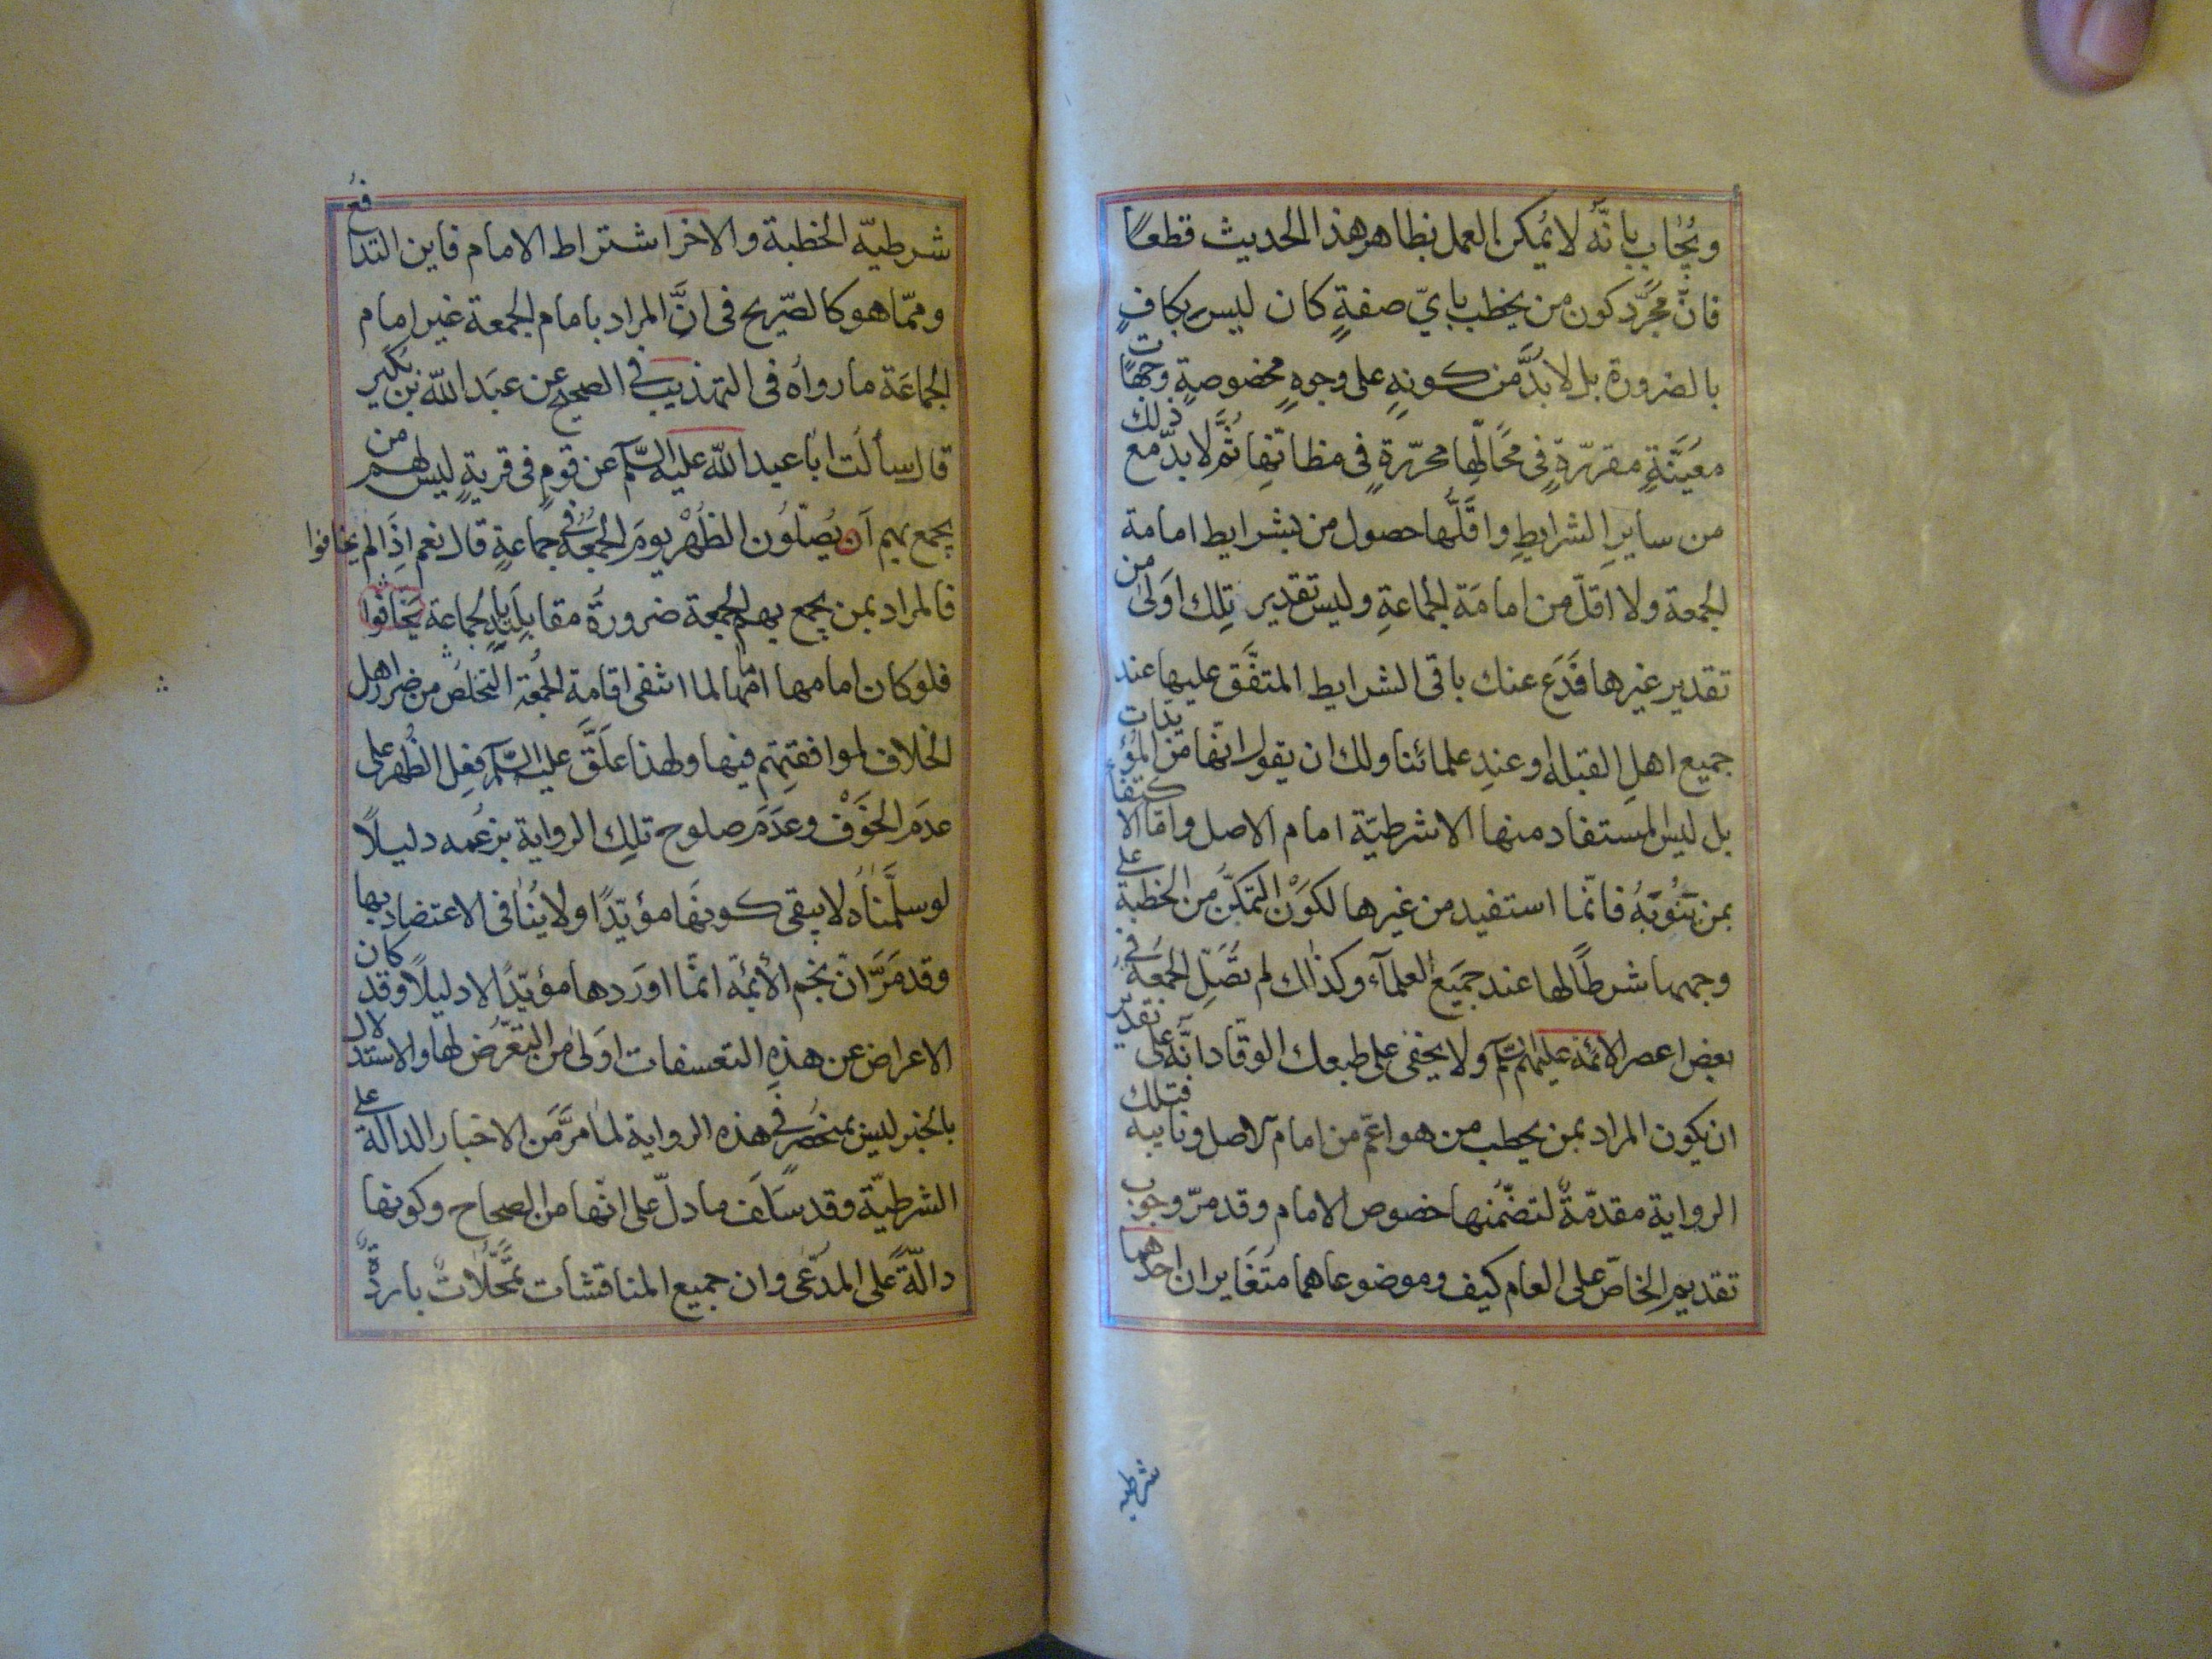 ويُجاب بانّه لا يُمكن العمل بظاهر هذا الحديث قطعًا
فانّ مجرّد كون من يخطب بايّ صفةٍ كان ليس بكافٍ
بالضرورة بل لا بدَّ من كونهِ على وجوهٍ مخصوصةٍ وجهات
معيَّنةٍ مقررّةٍ في محالّها محرّرةٍ في مظانّها ثمّ لا بدّ مع ذلك
من سايرِ الشرايطِ واقلّها حصول من بشرايط امامة
الجمعة ولا اقلّ من امامَة الجماعةِ وليس تقدير تلِك اوَلى من
تقدير غيرها فَدَع عنك باقى الشرايط المتفَّق عليها عند
جميع اهلِ القبله وعندِ علمائنا ولك ان يقول انّها من المؤيّدات
بل ليس المستفاد منها الا شرطيّة امام الاصل وامّا الاكتفاء
بمن يَنُوبَهُ فانّما استفيد من غيرها لكوَنْ التمكّن من الخطبة على
وجهها شرطًا لها عند جميَع العلمآء وكذٰلك لم تصَّلِ الجمعة في
بعض اعصر الائمّة عليهم السّلم ولا يخفى على طبعك الوقّاد انّه على تقدير
ان يكون المراد بمن يخطب من هو اعّم من امام الاصل ونايبه فتلك
الرواية مقدمّةٌ لتضمّنها خصوص الامام وقد مرّ وجوب
تقديم الخاصّ على العام كيف وموضوعاهما متغَايران احدهما
شرطيه
شرطيّه الخطبة والاخر اشتراط الامام فاين التدافع
وممّا هو كالصّريح فى انَّ المراد بامام الجمعة غير امام
الجماعَة ما رواُه فى التهذيب فى الصحيح عن عبَد اللّه بن بُكير
قال سألت ابا عبد اللّه عليه السّلم عن قومٍ فى قريةٍ ليس لهم من
يجمع بهم اَن يُصلّوُن الظُهْر يومَ الجُمُعُة فى جماعةٍ قال نعم اِذَا لم يخافوا
فالمراد بمن يجمع بهم الجمعة ضرورةً مقابل الجماعة يخافوا
فلو كان امامها امامها لما انتفى اقامة الجمُعة التخلّص من ضرر اهل
الخلاف لموافقتِهم فيها ولهذا علَقَّ عليه السَّلم فِعِل الظُهر على
عدَم الخَوَفْ وعدَمَ صلوح تلِك الرواية بزعمه دليلًا
لو سلَّمناُه لا يبقى كونهَا مؤيّدًا ولا يُنافى الاعتضاد بها
وقد مَرَّ انّ نجم الأئمّة انمّا اورَدها مؤيّدًا لا دليلًا وقد كان
الاعراض عن هذِهِ التعسفات اوَلىٰ من التّعرّض لها والاستدلال
بالخبر ليس بمنحُصرٍ فى هذه الرواية لماٰ مرَّ من الاخبار الدالّة على
الشرطيّة وقد سَلَف ما دلّ على انّها من الصحاح وكونها
دالّةً على المدّعى وان جميع المناقشات تمحّلات باردة